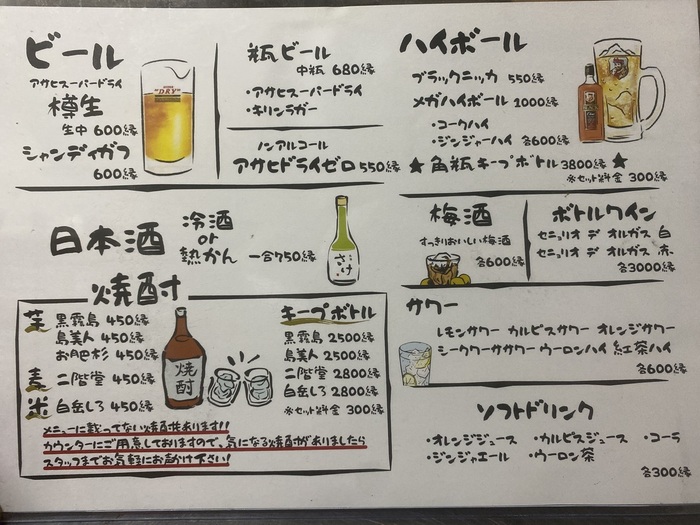 ビール
アサヒスーパードライ
樽生
生中 600縁
シャンディガフ
600縁
DRY
瓶ビール
中瓶 680縁
・アサヒスーパードライ
・キリンラガー
ノンアルコール
アサヒドライゼロ 550縁
ハイボール
ブラックニッカ 550縁
メガハイボール 1000縁
・コークハイ
・ジンジャーハイ 各600縁
★ 角瓶キープボトル 3800縁 ★
※セット料金 300縁
日本酒
冷酒
or
熱かん
一合750縁
さけ
梅酒
すっきりおいしい梅酒
各600縁
ボトルワイン
セニョリオ デ オルガス 白
セニョリオ デ オルガス 赤
各3000縁
焼酎
芋 黒霧島 450縁
島美人 450縁
お肥杉 450縁
麦 二階堂 450縁
米 白岳しろ 450縁
焼酎
キープボトル
黒霧島 2500縁
島美人 2500縁
二階堂 2800縁
白岳しろ 2800縁
※セット料金 300縁
メニューに載ってない焼酎もあります!!
カウンターにご用意しておりますので、気になる焼酎がありましたら
スタッフまでお気軽にお声がけ下さい!
サワー
レモンサワー カルピスサワー オレンジサワー
シークワーササワー ウーロンハイ 紅茶ハイ
各600縁
ソフトドリンク
・オレンジジュース ・カルピスジュース ・コーラ
・ジンジャエール ・ウーロン茶
各300縁